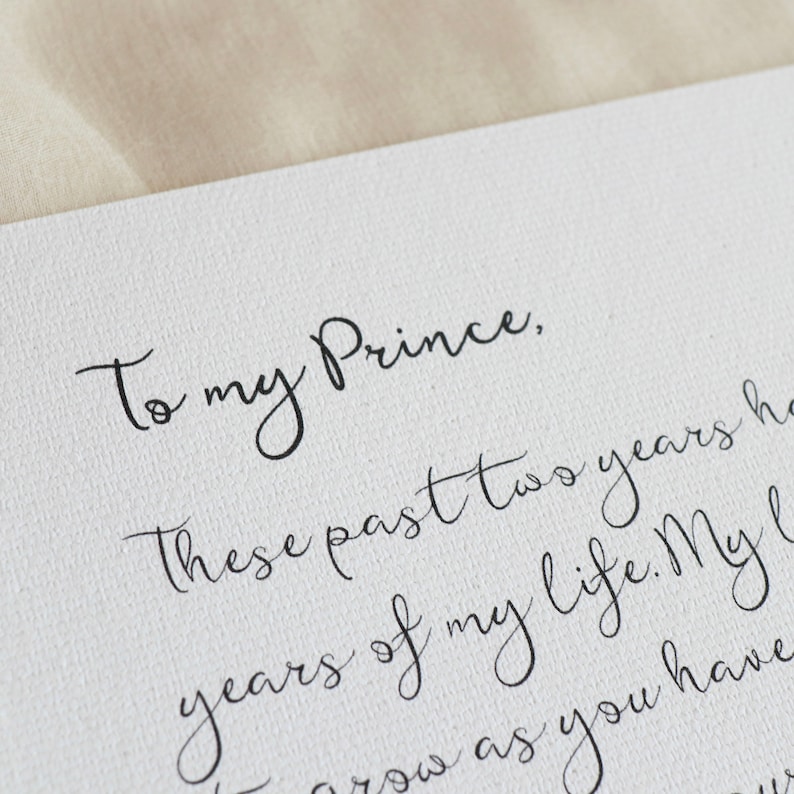 To my Prince,
These past two years
years of my life. My
grow as you have